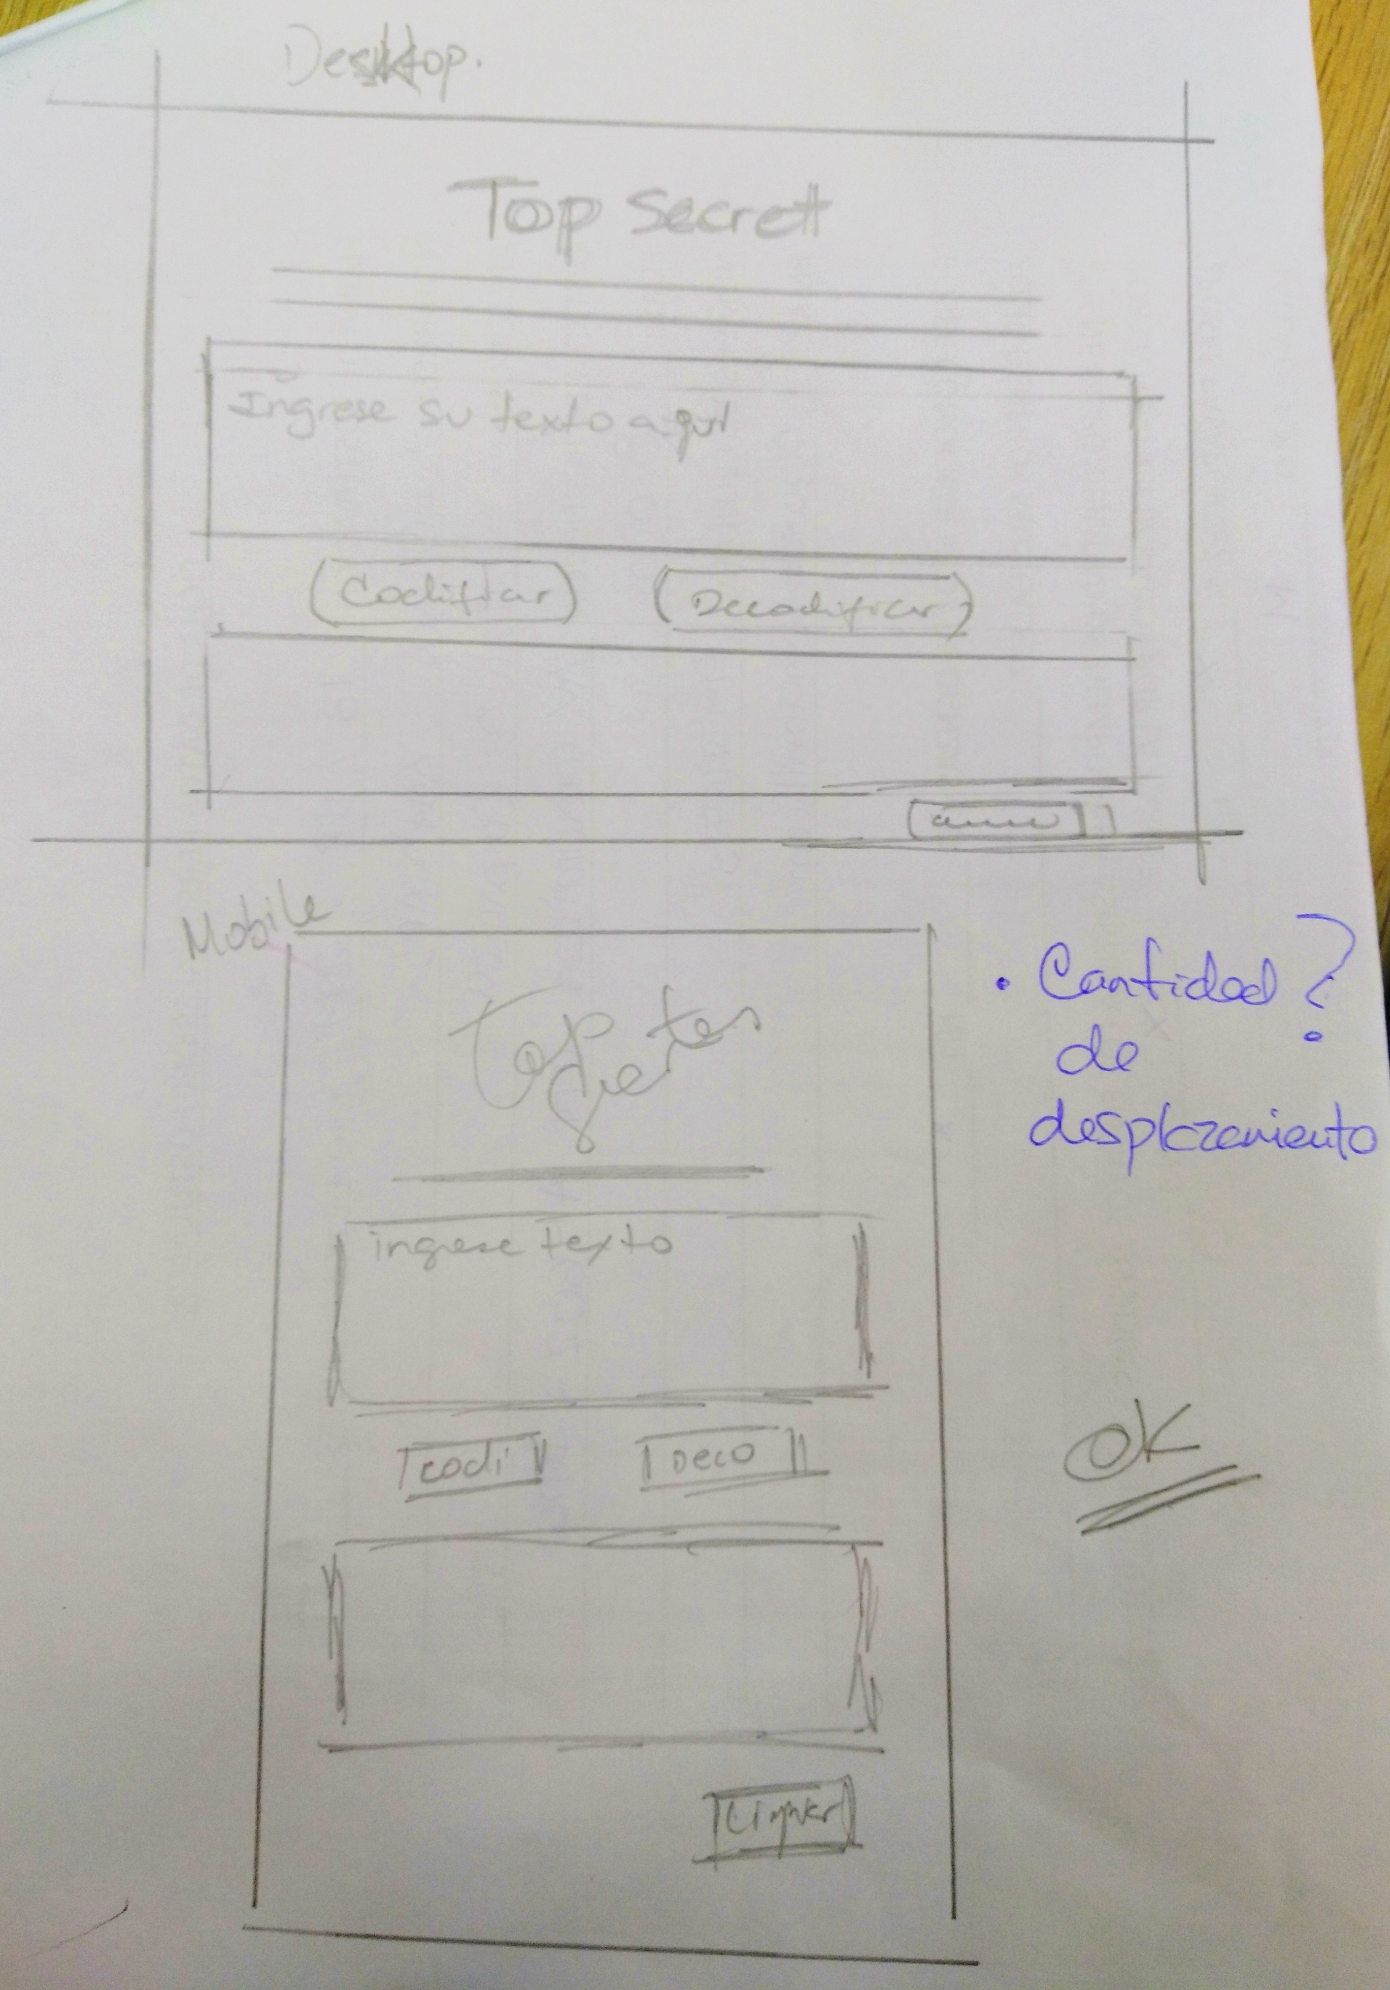 Desktop.
Top Secret
Ingrese su texto aqui
Codificar
Decodificar
Mobile
Top
ingrese texto
codi
Deco
Limpiar
• Cantidad ?
de
desplazamiento
OK